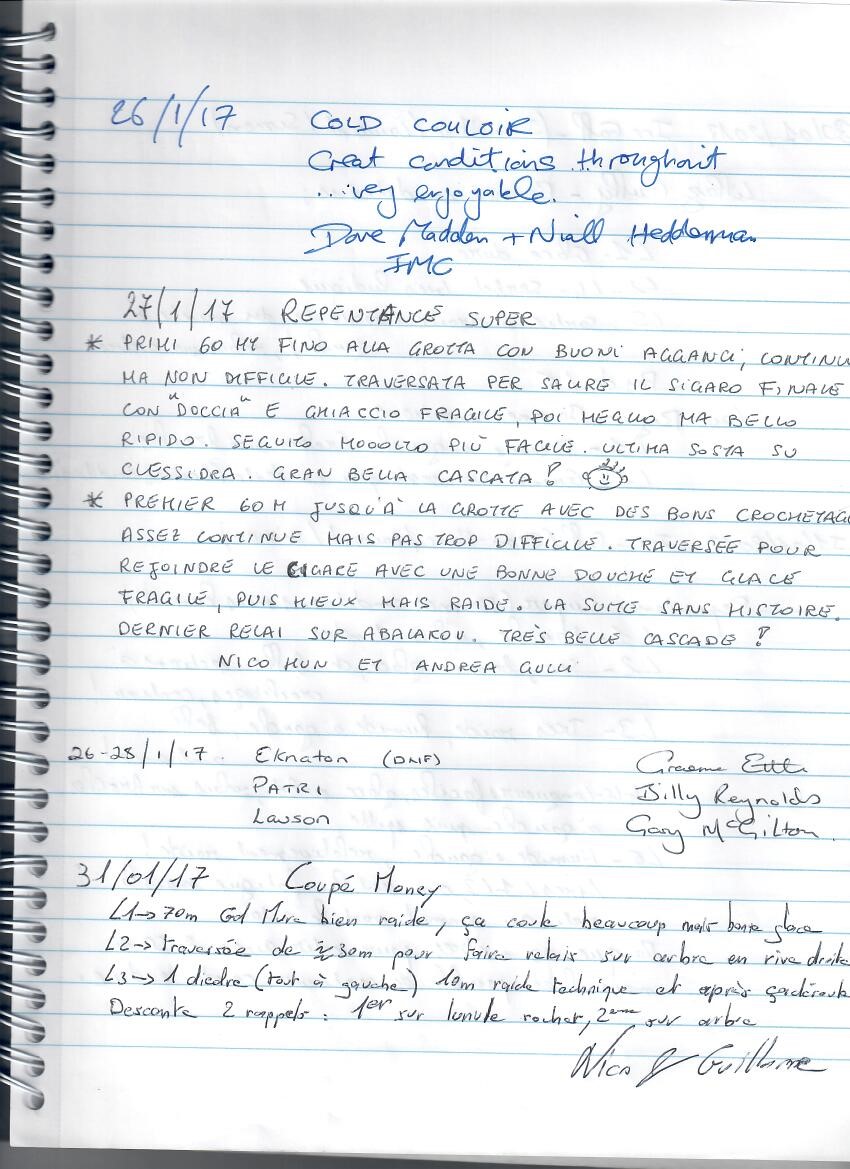 26/1/17 COLD COULOIR
Great conditions throughout
...very enjoyable.
Dave Madden + Niall Hedderman
IMC
27/1/17 REPENTANCE SUPER
* PRIMI 60 MT FINO ALLA GROTTA CON BUONI AGGANCI, CONTINU
MA NON DIFFICILE. TRAVERSATA PER SALIRE IL SIGARO FINALE
CON "DOCCIA" E GHIACCIO FRAGILE, POI MEGLIO MA BELLO
RIPIDO. SEGUITO MOOOLTO PIÙ FACILE. ULTIMA SOSTA SU
CLESSIDRA. GRAN BELLA CASCATA !
* PREMIER 60 M JUSQU'À LA GROTTE AVEC DES BONS CROCHETAG
ASSEZ CONTINUE MAIS PAS TROP DIFFICILE. TRAVERSÉE POUR
REJOINDRE LE CIGARE AVEC UNE BONNE DOUCHE ET GLACE
FRAGILE, PUIS MIEUX MAIS RAIDE. LA SUITE SANS HISTOIRE.
DERNIER RELAI SUR ABALAKOV. TRÈS BELLE CASCADE !
NICO HUN ET ANDREA GULLI
26-28/1/17. Eknaton (DNF) Graeme
PATRI Billy Reynolds
Lauson Gary McGilton.
31/01/17 Coupé Money
L1→ 70m Gd Mur bien raide, ça coule beaucoup mais bonne glace
L2→ traversée de ≈30m pour faire relais sur arbre en rive droite
L3→ 1 diedre (tout à gauche) 10m raide technique et après ça déroule
Descente 2 rappels : 1er sur lunule rocher, 2ème sur arbre
Nico & Guillaume